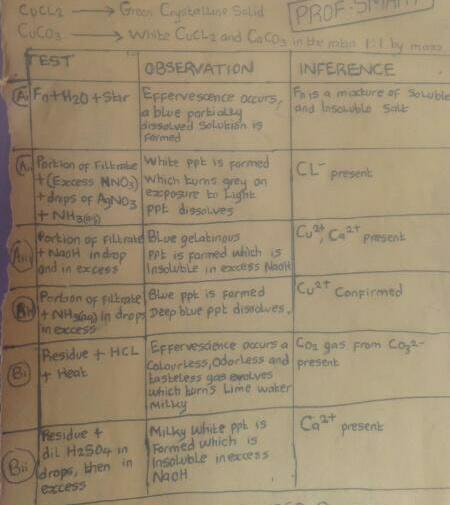 CuCL2 → Green Crystalline Solid
PROF. SMART
CuCO3 → White CuCL2 and CaCO3 in the ratio 1:1 by mass
TEST
OBSERVATION
INFERENCE
Ai
Fn+H2O+Stir
Effervescence occurs,
a blue partially
dissolved solution is
formed
Fn is a mixture of Soluble
and Insoluble Salt
Aii
Portion of Filtrate
+(Excess HNO3)
+drops of AgNO3
+ NH3(aq)
White ppt is formed
which turns grey on
exposure to Light
ppt dissolves
CL- present
Aiii
Portion of Filtrate
+ NaOH in drop
and in excess
Blue gelatinous
ppt is formed which is
Insoluble in excess NaOH
Cu2+, Ca2+ present
Portion of filtrate
+ NH3(aq) in drops
in excess
Blue ppt is formed
Deep blue ppt dissolves.
Cu2+ Confirmed
Bi
Residue + HCL
+ Heat
Effervescience occurs a
Colourless, Odorless and
tasteless gas evolves
which turns Lime water
Milky
CO2 gas from CO32-
present
Bii
Residue +
dil H2SO4 in
drops, then in
excess
Milky White ppt is
Formed which is
Insoluble in excess
NaOH
Ca2+ present